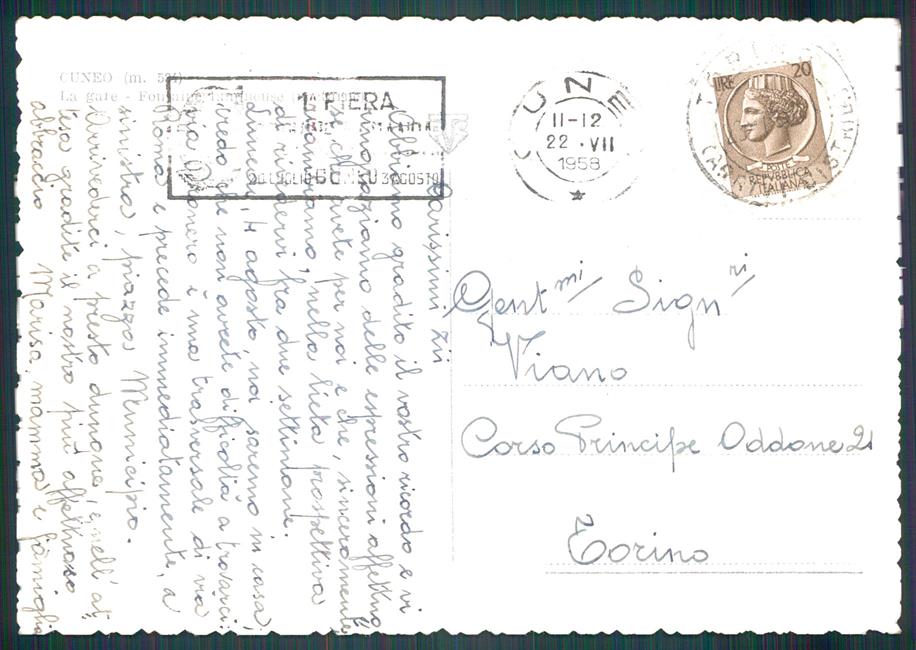 CUNEO (m. 534)
La gare - Fontaine
I FIERA
30 LUGLIO 3 AGOSTO
CUNEO
11-12
22 · VII
1958
LIRE 20
POSTE
REPVBBLICA
ITALIANA
Carissimi zii
Abbiamo gradito il vostro ricordo e vi
ringraziamo delle espressioni affettuo
se che avete per noi e che, sinceramente,
ricambiamo, nella lieta prospettiva
di rivedervi fra due settimane.
Lunedì, 4 agosto, noi saremo in casa;
credo che non avrete difficoltà a trovarci:
via è una trasversale di via
Roma e precede immediatamente, a
sinistra, piazza Municipio.
Arrivederci a presto dunque, e, nell'at
tesa gradite il nostro più affettuoso
abbraccio Marisa, mamma e famiglia
Gent.mi Sign.ri
Viano
Corso Principe Oddone 21
Torino